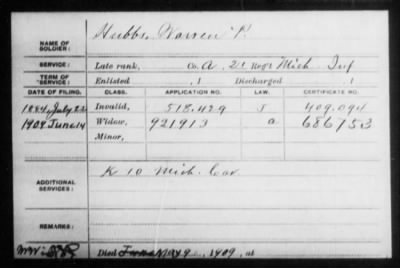 NAME OF SOLDIER: Hubbs, Warren P.
SERVICE: Late rank, Co. A, 21 Reg't Mich. Inf
TERM OF SERVICE: Enlisted , 1 Discharged , 1
DATE OF FILING. CLASS. APPLICATION NO. LAW. CERTIFICATE NO.
1884, July 22 Invalid, 518.429 409.094
1909 June 14 Widow, 921913 a 686753
Minor,
ADDITIONAL SERVICES: K 10 Mich. Cav
REMARKS:
Died May 9, 1909, at